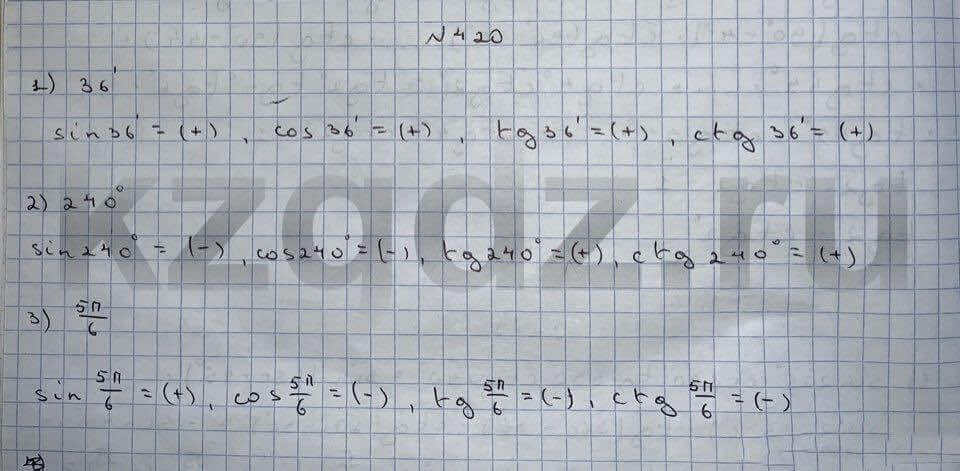 N 420
1) 36'
sin 36' = (+), cos 36' = (+), tg 36' = (+), ctg 36' = (+)
2) 240°
sin 240° = (-), cos 240° = (-), tg 240° = (+), ctg 240° = (+)
3) 5π/6
sin 5π/6 = (+), cos 5π/6 = (-), tg 5π/6 = (-), ctg 5π/6 = (-)
kzgdz.ru